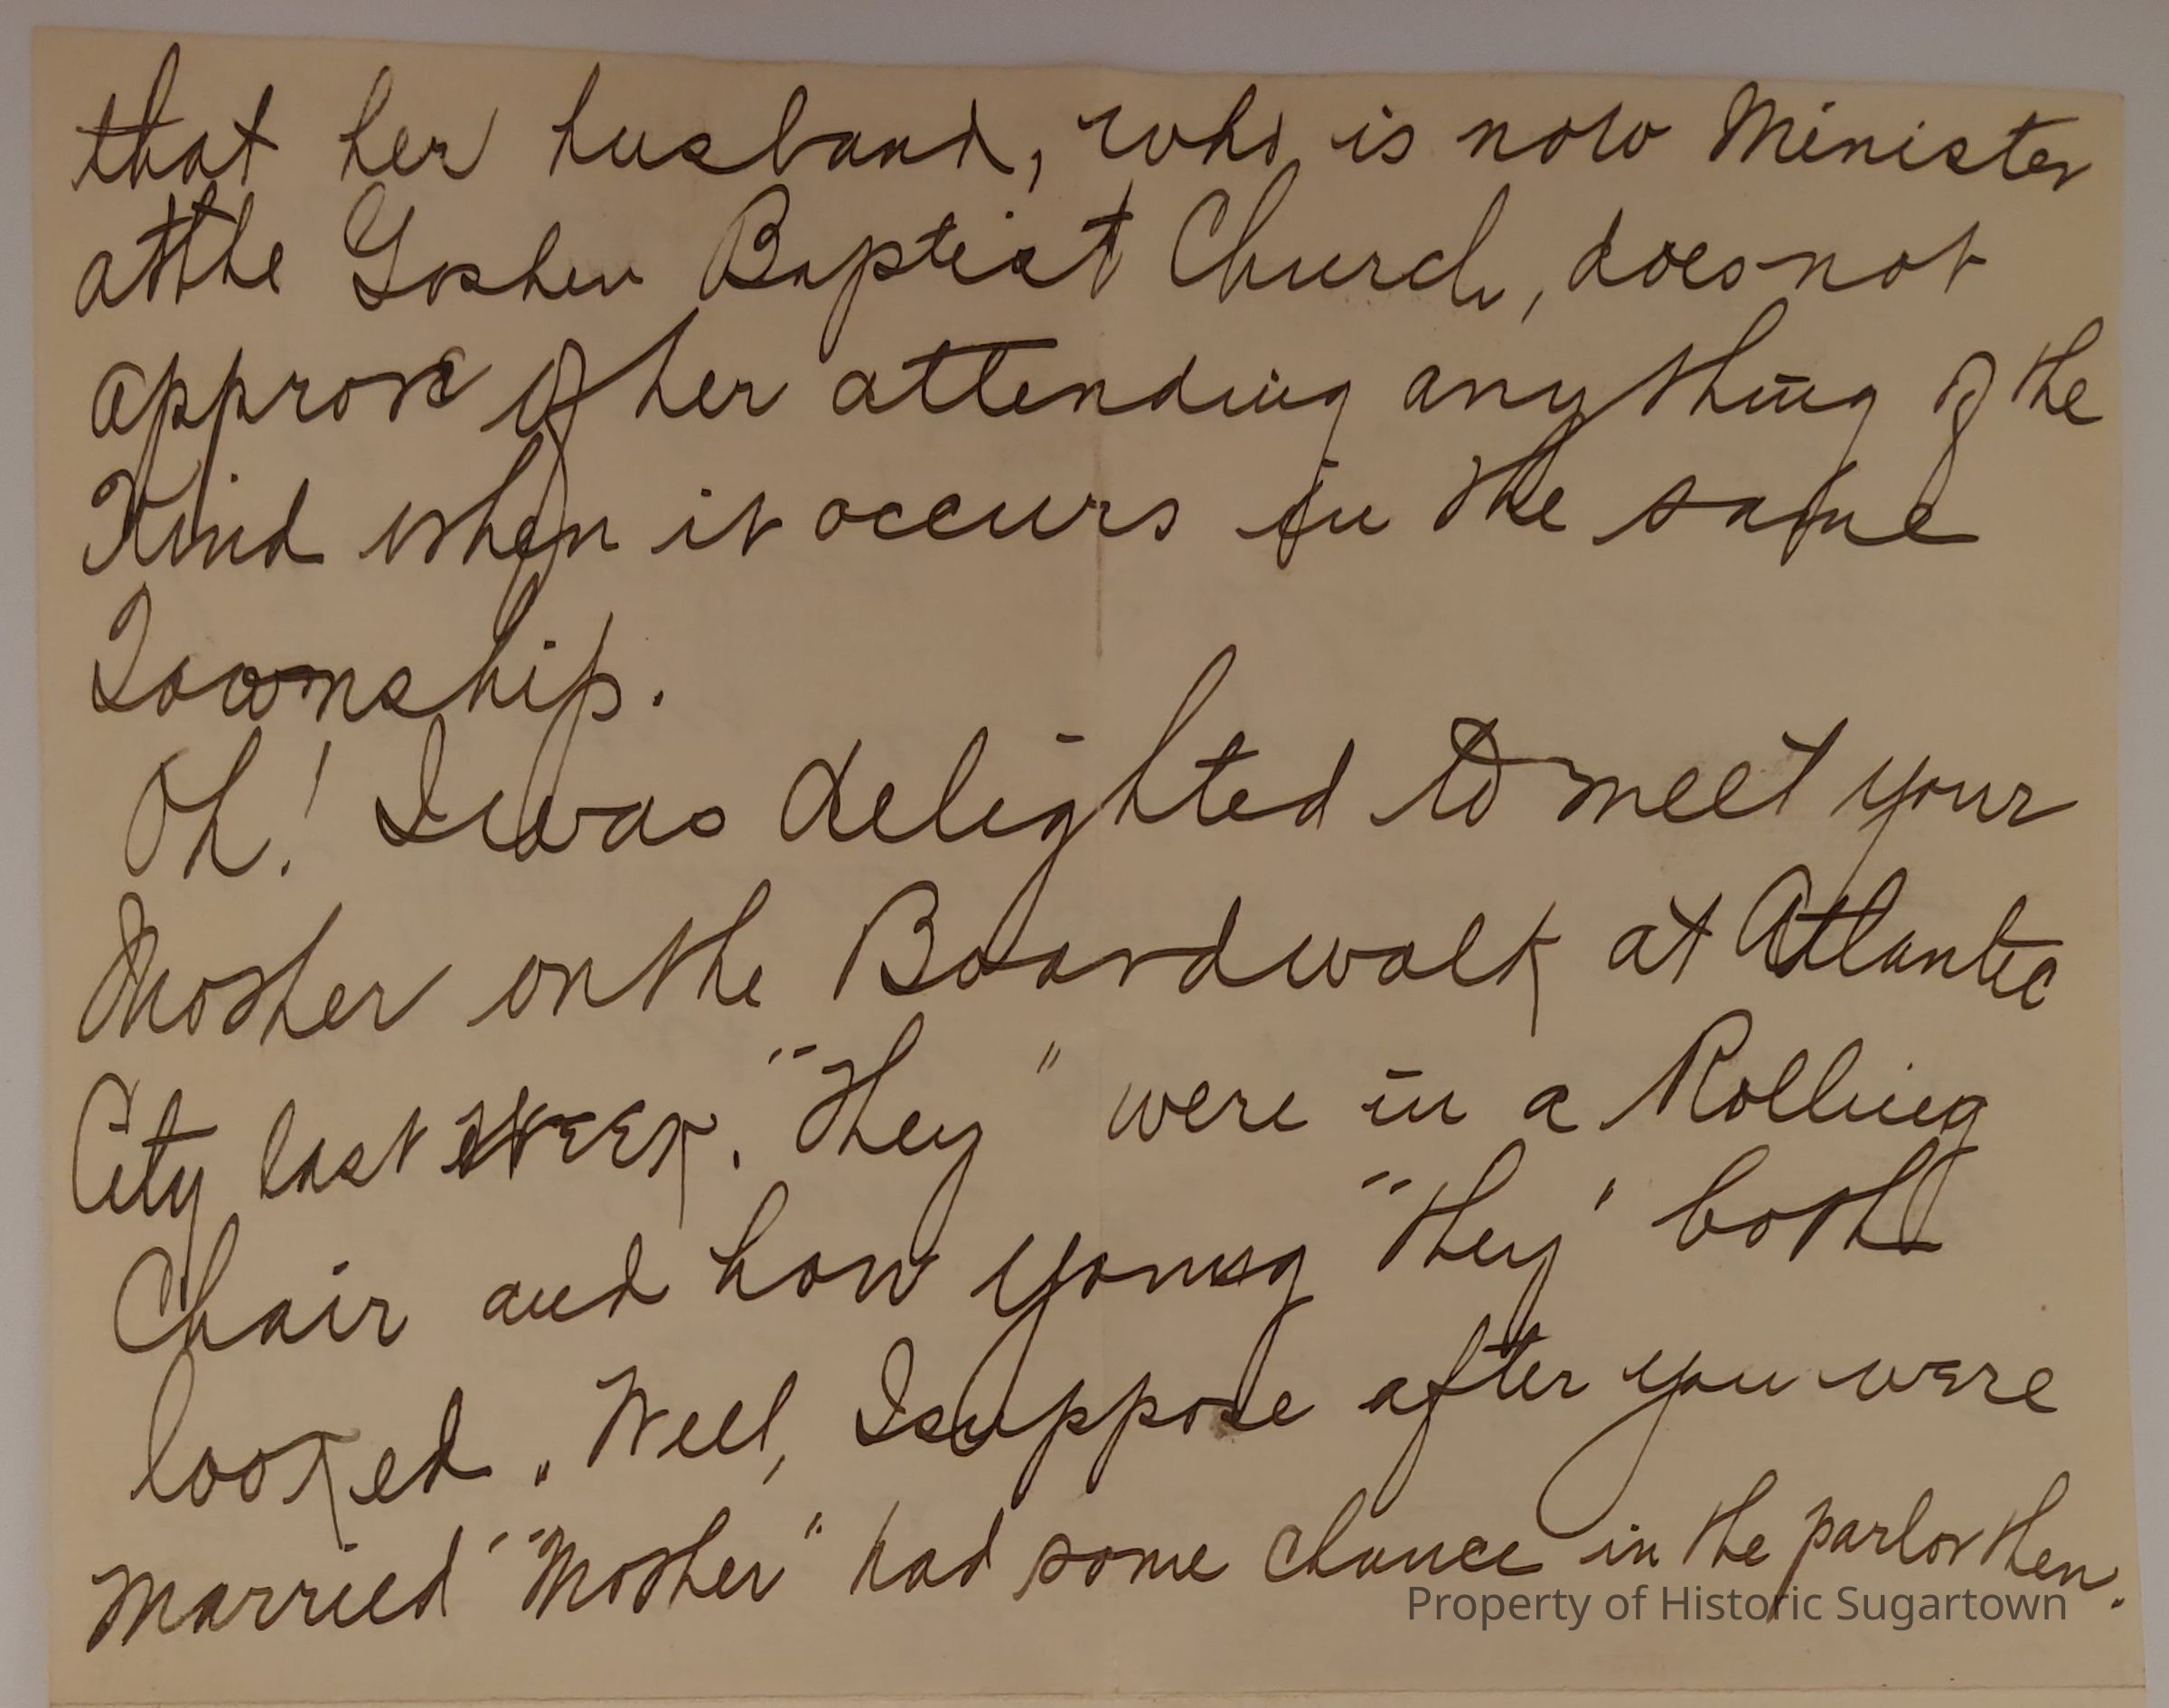 that her husband, who is now Minister
at the Goshen Baptist Church, does not
approve of her attending anything of the
Kind when it occurs in the same
Township.
Oh! I was delighted to meet your
Mother on the Boardwalk at Atlantic
City last week. "They" were in a Rolling
Chair and how young "they" both
looked. Well, I suppose after you were
married "Mother" had some chance in the parlor then.
Property of Historic Sugartown